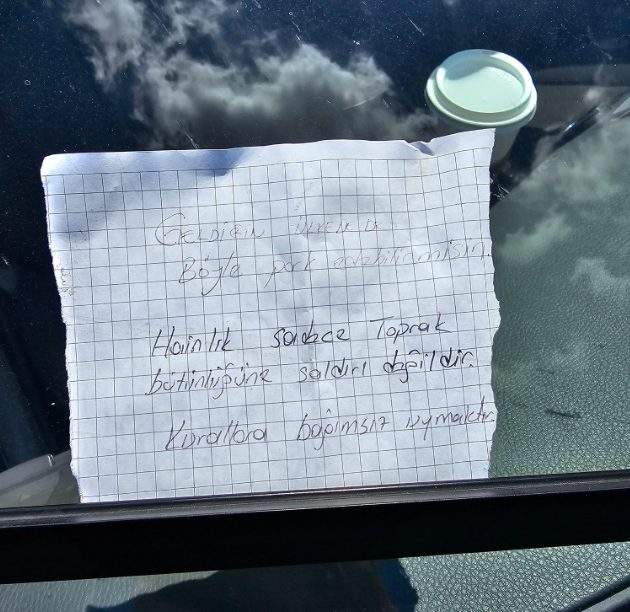 GELDİĞİN ÜLKENDE
Böyle park edebilirmisin.
Hainlik sadece Toprak
bütünlüğüne saldırı değildir.
Kurallara bağımsız uymaktır